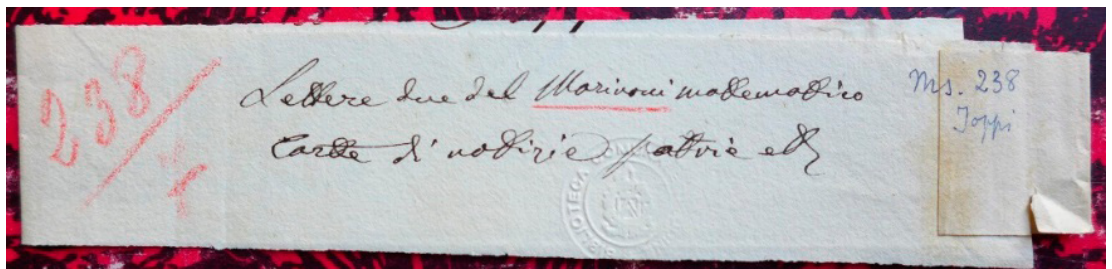 238/
Lettere due del Marinoni mattematico
Carte di notizie patrie etc
Ms. 238
Joppi